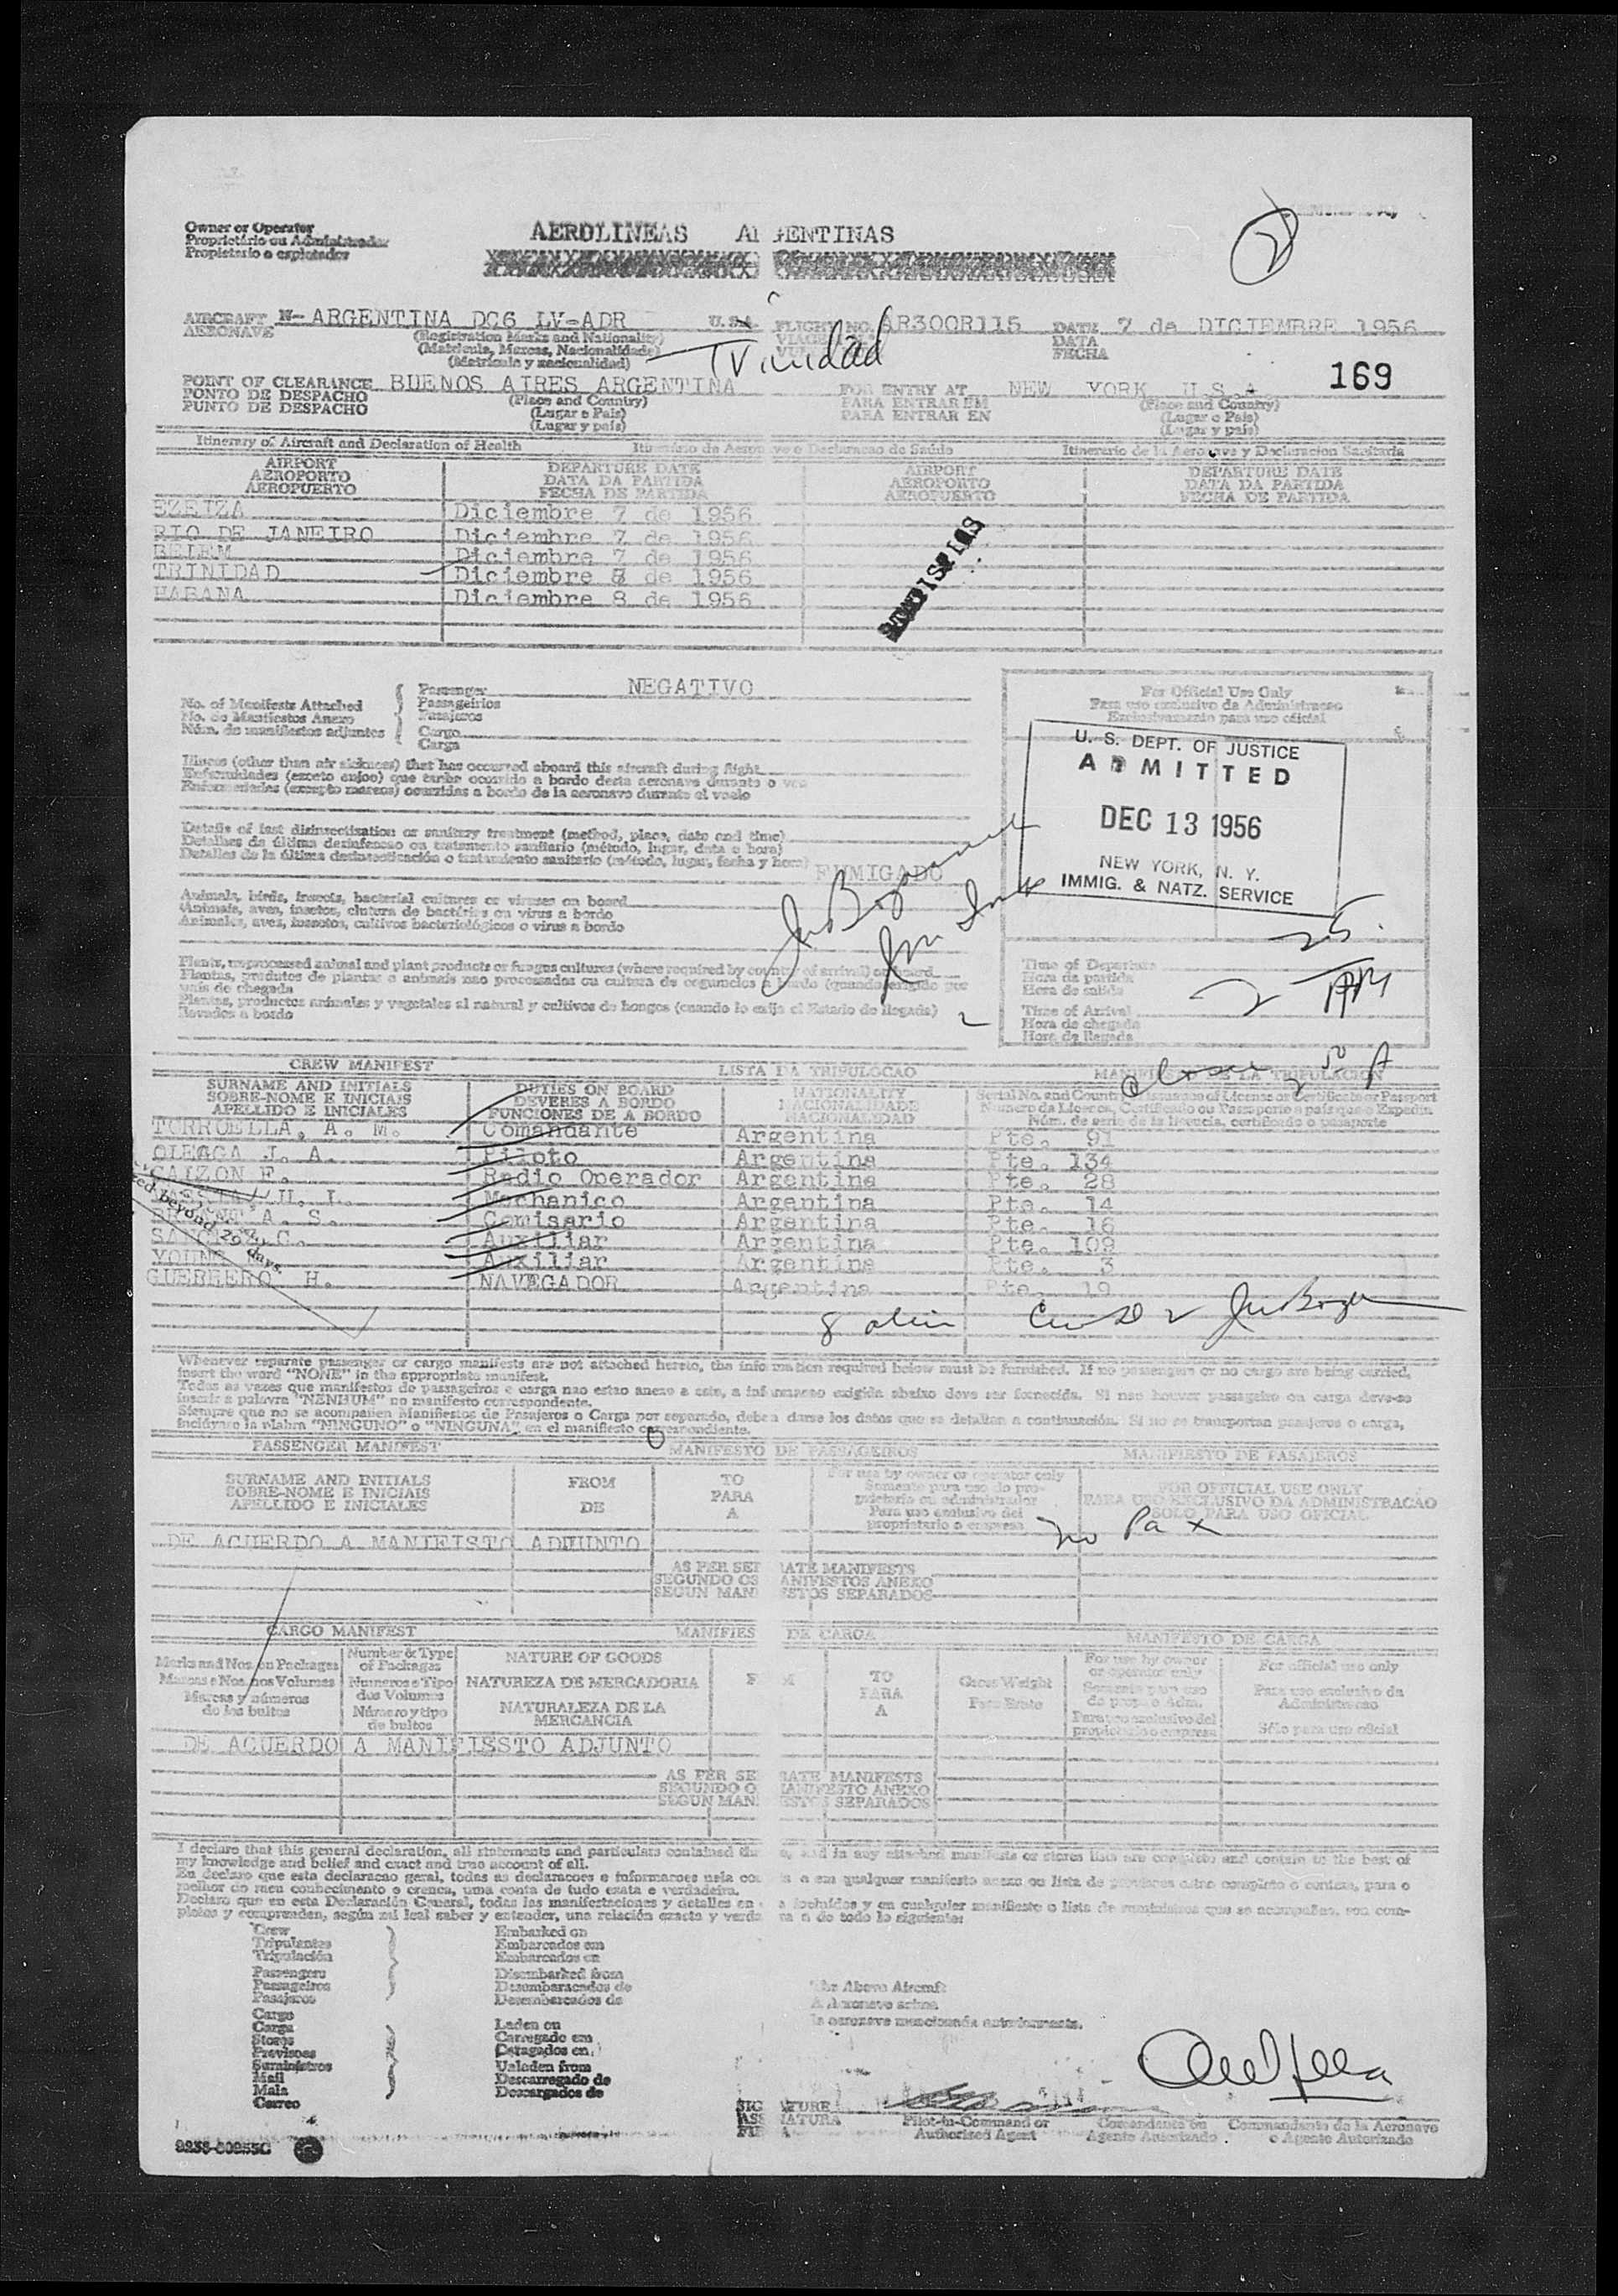 Owner or Operator
Proprietário ou Administrador
Propietario o explotador
AEROLINEAS ARGENTINAS
AIRCRAFT N- ARGENTINA DC6 LV-ADR U.S.A. FLIGHT NO. AR300R115 DATE 7 de DICIEMBRE 1956
AERONAVE (Registration Marks and Nationality) DATA
(Matricula, Marcas, Nacionalidade) FECHA
(Matrícula y nacionalidad)
Trinidad
169
POINT OF CLEARANCE BUENOS AIRES ARGENTINA FOR ENTRY AT NEW YORK U.S.A.
PONTO DE DESPACHO (Place and Country) PARA ENTRAR EM (Place and Country)
PUNTO DE DESPACHO (Lugar e Pais) PARA ENTRAR EN (Lugar e Pais)
(Lugar y país) (Lugar y país)
Itinerary of Aircraft and Declaration of Health
AIRPORT DEPARTURE DATE AIRPORT DEPARTURE DATE
AEROPORTO DATA DA PARTIDA AEROPORTO DATA DA PARTIDA
AEROPUERTO FECHA DE PARTIDA AEROPUERTO FECHA DE PARTIDA
EZEIZA Diciembre 7 de 1956
RIO DE JANEIRO Diciembre 7 de 1956
BELEM Diciembre 7 de 1956
TRINIDAD Diciembre 8 de 1956
HABANA Diciembre 8 de 1956
No. of Manifests Attached
No. de Manifiestos Anexo
Núm. de manifiestos adjuntos
Passenger NEGATIVO
Passageirios
Pasajeros
Cargo
Carga
For Official Use Only
Para uso exclusivo da Administracao
Exclusivamente para uso oficial
U. S. DEPT. OF JUSTICE
ADMITTED
DEC 13 1956
NEW YORK, N. Y.
IMMIG. & NATZ. SERVICE
Illness (other than air sickness) that has occurred aboard this aircraft during flight
Enfermidades (exceto enjoo) que tenha ocorrido a bordo desta aeronave durante o voo
Enfermedades (excepto mareos) ocurridas a bordo de la aeronave durante el vuelo
Details of last disinsectization or sanitary treatment (method, place, date and time)
Detalhes da última desinfeccao ou tratamento sanitario (método, lugar, data e hora)
Detalles de la última desinsectización o tratamiento sanitario (método, lugar, fecha y hora) FUMIGADO
Animals, birds, insects, bacterial cultures or viruses on board
Animais, aves, insetos, clutura de bactérias ou virus a bordo
Animales, aves, insectos, cultivos bacteriológicos o virus a bordo
Plants, unprocessed animal and plant products or fungus cultures (where required by country of arrival) on board
Plantas, produtos de plantas o animais nao processados ou cultura de cogumelos a bordo (quando exigido por
pais de chegada
Plantas, productos animales y vegetales al natural y cultivos de hongos (cuando lo exija el Estado de llegada)
llevados a bordo
Time of Departure
Hora da partida
Hora de salida
Time of Arrival
Hora de chegada
Hora de llegada
CREW MANIFEST LISTA DA TRIPULOCAO
SURNAME AND INITIALS DUTIES ON BOARD NATIONALITY
SOBRE-NOME E INICIAIS DEVERES A BORDO NACIONALIDADE
APELLIDO E INICIALES FUNCIONES DE A BORDO NACIONALIDAD
TORRUELLA, A. M. Comandante Argentina Pte. 91
OLEAGA J. A. Piloto Argentina Pte. 134
CALZON F. Radio Operador Argentina Pte. 28
H. I. Mechanico Argentina Pte. 14
A. S. Comisario Argentina Pte. 16
C. Auxiliar Argentina Pte. 109
YOUNG Auxiliar Argentina Pte. 3
GUERRERO H. NAVEGADOR Argentina Pte. 19
beyond 29 days.
Whenever separate passenger or cargo manifests are not attached hereto, the information required below must be furnished. If no passengers or no cargo are being carried,
insert the word "NONE" in the appropriate manifest.
Todas as vezes que manifestos de passageiros e carga nao estao anexo a este, a informacao exigida abaixo deve ser fornecida. Si nao houver passageiro ou carga deve-se
inserir a palavra "NENHUM" no manifesto correspondente.
Siempre que no se acompañen Manifiestos de Pasajeros o Carga por separado, deben darse los datos que se detallan a continuación. Si no se transportan pasajeros o carga,
inclúyase la palabra "NINGUNO" o "NINGUNA" en el manifiesto correspondiente.
PASSENGER MANIFEST MANIFESTO DE PASSAGEIROS MANIFIESTO DE PASAJEROS
SURNAME AND INITIALS FROM TO For use by owner or operator only FOR OFFICIAL USE ONLY
SOBRE-NOME E INICIAIS DE PARA PARA USO EXCLUSIVO DA ADMINISTRACAO
APELLIDO E INICIALES A SOLO PARA USO OFICIAL
no Pax
DE ACUERDO A MANIFISTO ADJUNTO
AS PER SEPARATE MANIFESTS
SEGUNDO OS MANIFESTOS ANEXO
SEGUN MANIFIESTOS SEPARADOS
CARGO MANIFEST MANIFIESTO DE CARGA MANIFESTO DE CARGA
Marks and Nos. on Packages
Marcas e Nos. nos Volumes
Marcas y números
de los bultos
Number & Type
of Packages
Numeros e Tipo
dos Volumes
Número y tipo
de bultos
NATURE OF GOODS
NATUREZA DE MERCADORIA
NATURALEZA DE LA
MERCANCIA
TO
PARA
A
Gross Weight
Peso Bruto
For use by owner
or operator only
For official use only
Para uso exclusivo da
Administracao
Sólo para uso oficial
DE ACUERDO A MANIFIESTO ADJUNTO
AS PER SEPARATE MANIFESTS
SEGUNDO O MANIFESTO ANEXO
SEGUN MANIFIESTOS SEPARADOS
I declare that this general declaration, all statements and particulars contained and in any attached manifests or stores lists are complete and contain to the best of
my knowledge and belief and exact and true account of all.
Crew
Tripulantes
Tripulación
Passengers
Passageiros
Pasajeros
Cargo
Carga
Stores
Provisoes
Suministros
Mail
Mala
Correo
Embarked on
Embarcados em
Embarcados en
Disembarked from
Desembaracados de
Desembarcados de
Laden on
Carregado em
Cargados en
Unladen from
Descarregado de
Descargados de
The Above Aircraft
A Aeronave acima
la aeronave mencionada anteriormente.
SIGNATURE
ASSINATURA
FIRMA
Pilot-in-Command or
Authorized Agent
Comandante ou
Agente Autorizado
Commandante de la Aeronave
o Agente Autorizado